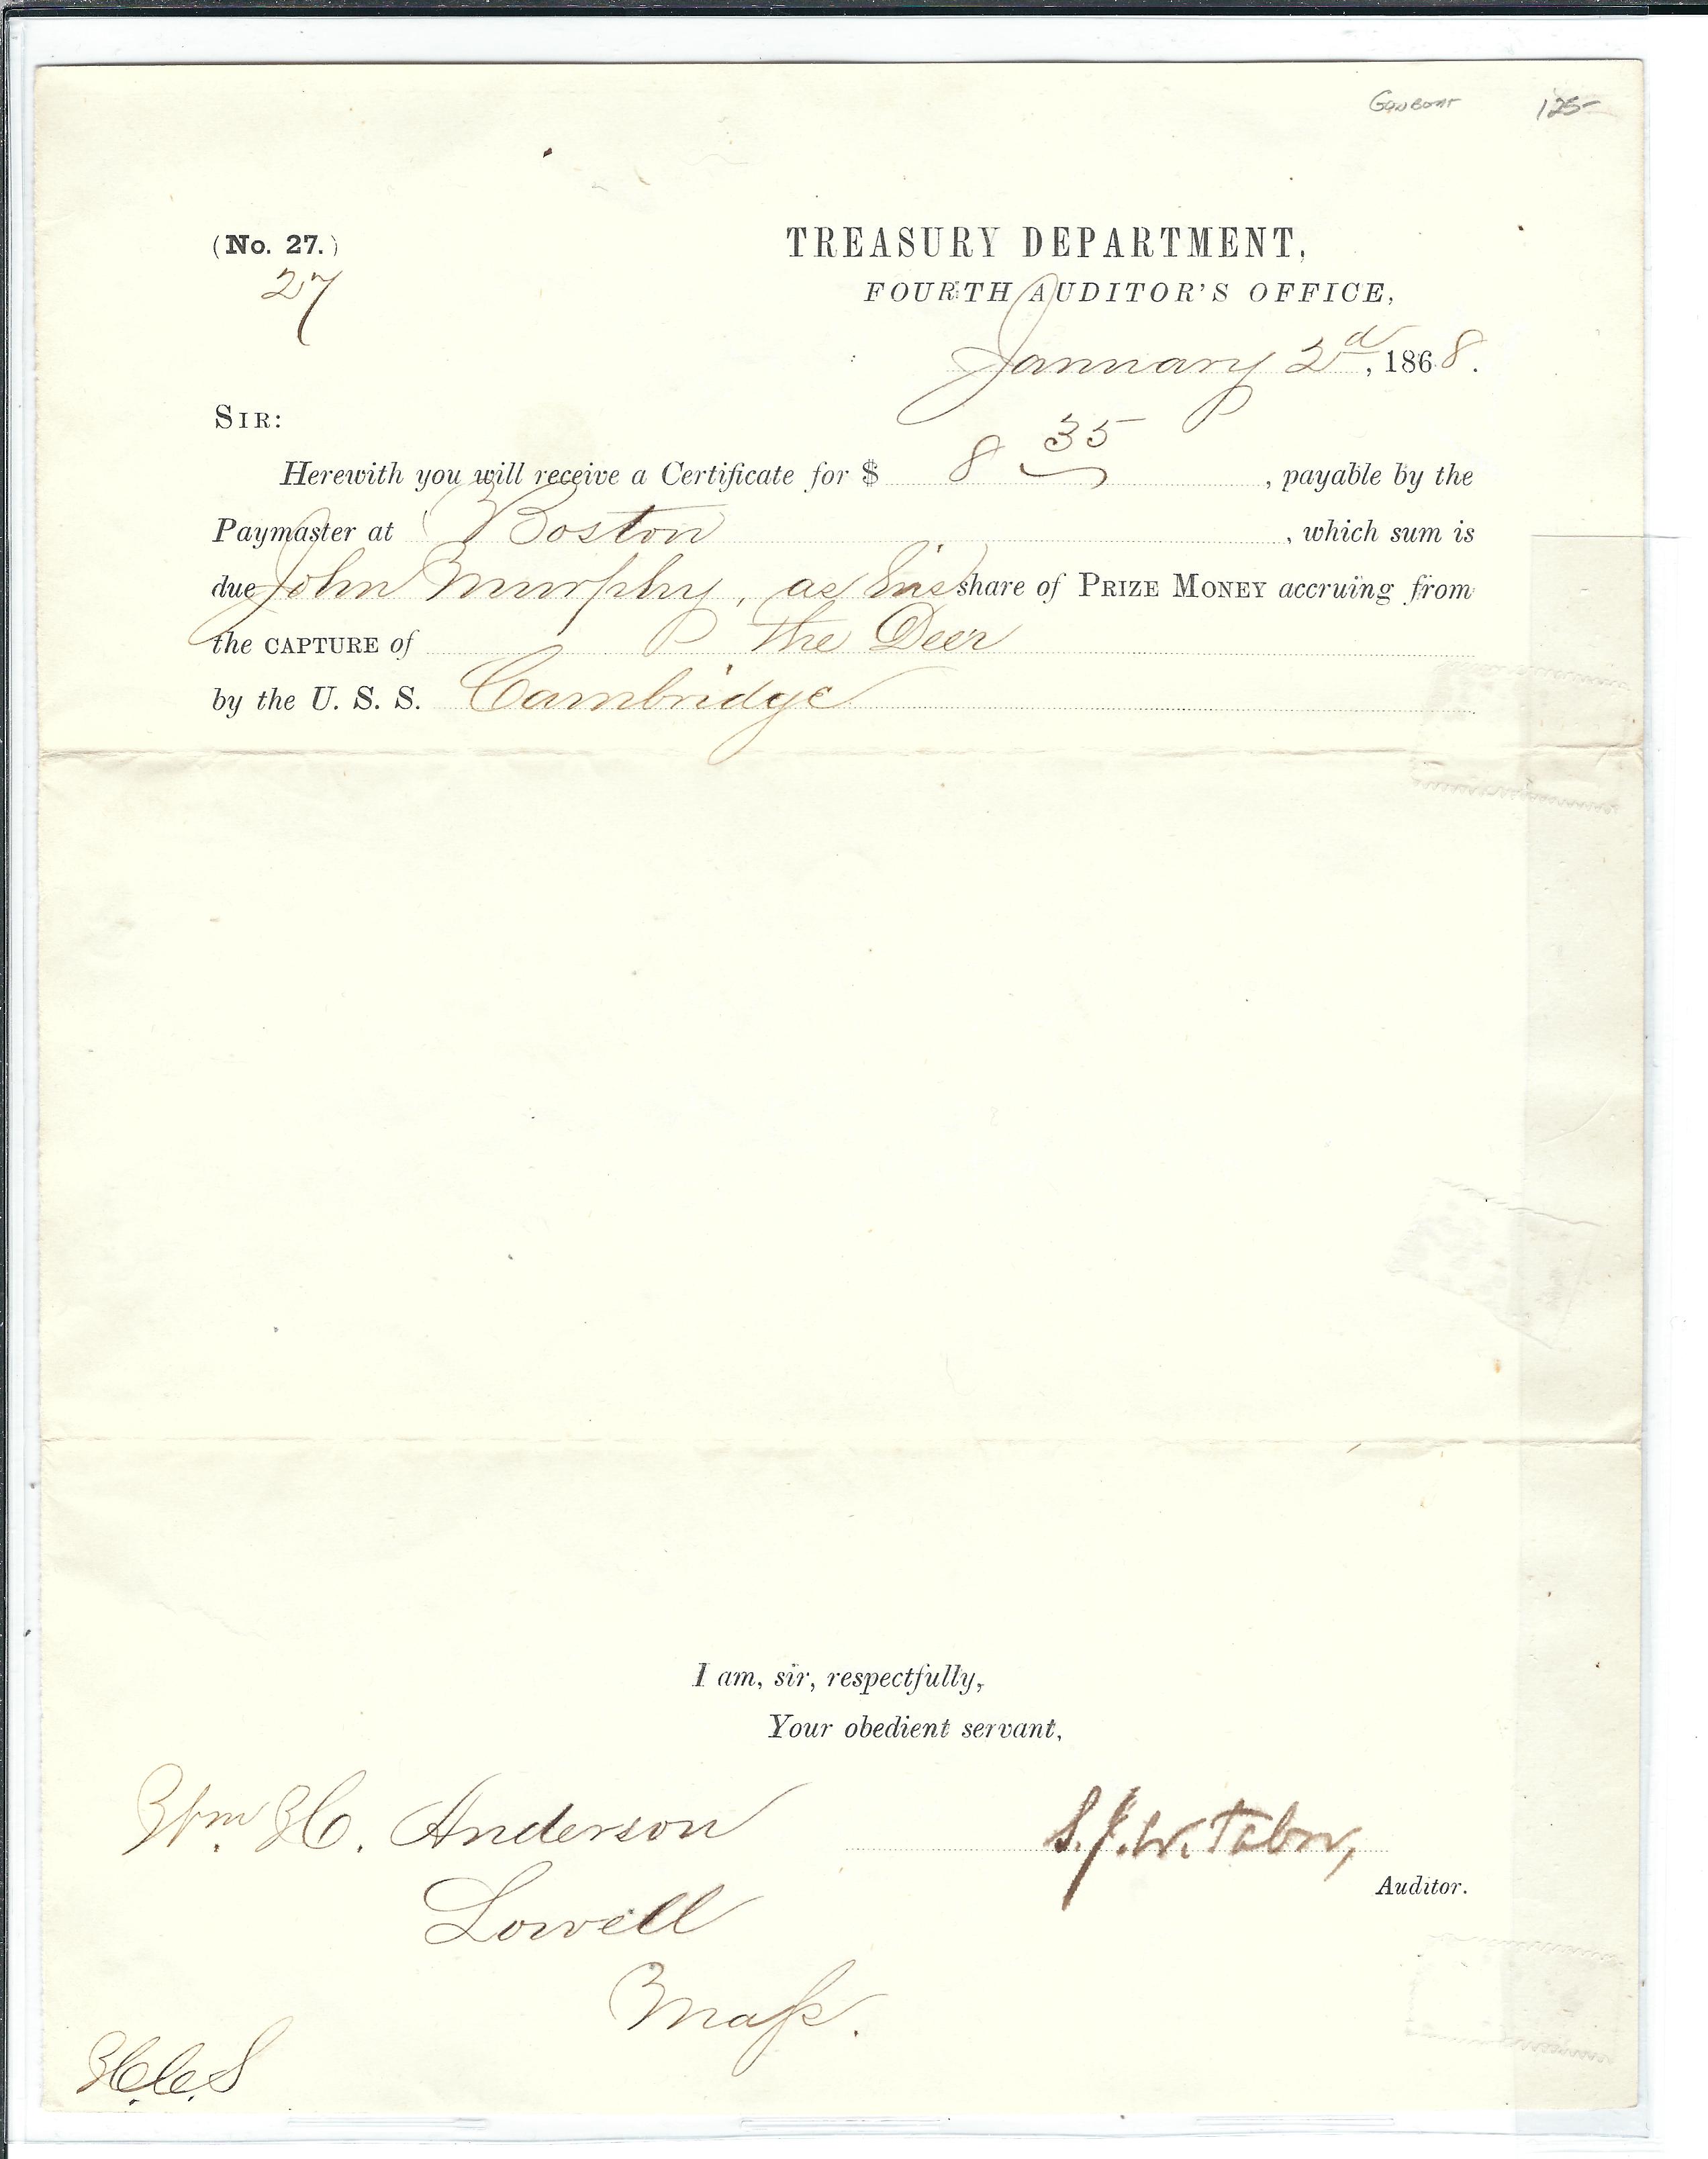 Gunboat 125-
(No. 27.)
27
TREASURY DEPARTMENT,
FOURTH AUDITOR'S OFFICE,
January 2d, 1868.
SIR:
Herewith you will receive a Certificate for $ 8 35, payable by the
Paymaster at Boston, which sum is
due John Murphy, as his share of PRIZE MONEY accruing from
the CAPTURE of the Deer
by the U. S. S. Cambridge
I am, sir, respectfully,
Your obedient servant,
Wm. H. Anderson
S.J.W. Tabor,
Auditor.
Lowell
Mass.
H.C.S